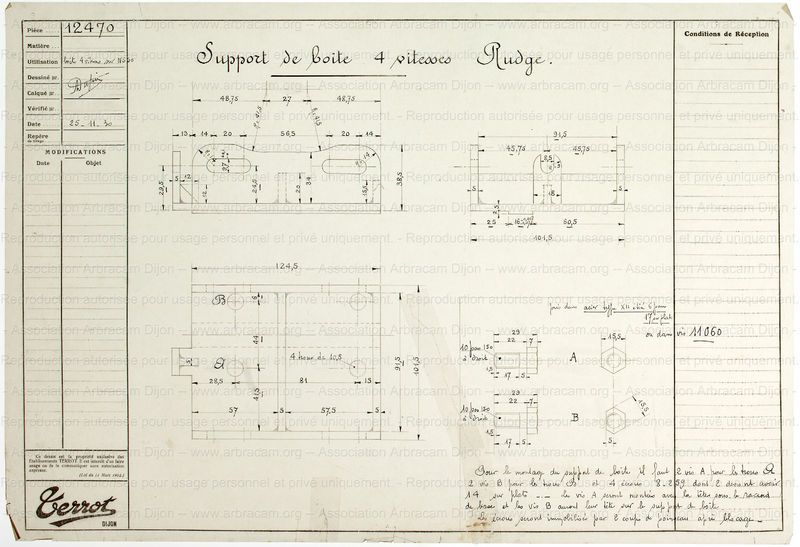 Pièce 12470
Matière
Utilisation
Dessiné p.
Calqué p.
Vérifié p.
Date 25-11-30
Repère
MODIFICATIONS
Date Objet
Support de boîte 4 vitesses Rudge.
Conditions de Réception
48,75 27 48,75
13 14 20 56,5 20 14
38,5
29,5
5 12
12
24,5
20
34
15,5
91,5
45,75 45,75
8,5
5 5
18
2,5
25 16 60,5
101,5
124,5
B
A
6
44
41,5
4 trous de 10,5
28,5 81 15
57 5 57,5 5
91,5
101,5
5
pris dans acier
17 sur plats
ou dans vis 11060
29
22 7
10 pas 150
à droite
1,5
17 5
A
15,5
29
22 7
10 pas 150
à droite
1,5
17 5
B
15,5
Pour le montage du support de boîte il faut 2 vis A pour les trous A
2 vis B pour les trous B et 4 écrous 8.259 dont 2 devront avoir
14 sur plats _._ Les vis A seront montées avec la tête sous le
de base et les vis B auront leur tête sur le support de boîte.
Les écrous seront immobilisés par 2 coups de pointeau après blocage._
Ce dessin est la propriété exclusive des
Etablissements TERROT. Il est interdit d'en faire
usage ou de le communiquer sans autorisation
expresse.
(Loi du 11 Mars 1902.)
Terrot
DIJON
Association Arbracam Dijon – www.arbracam.org
Reproduction autorisée pour usage personnel et privé uniquement.